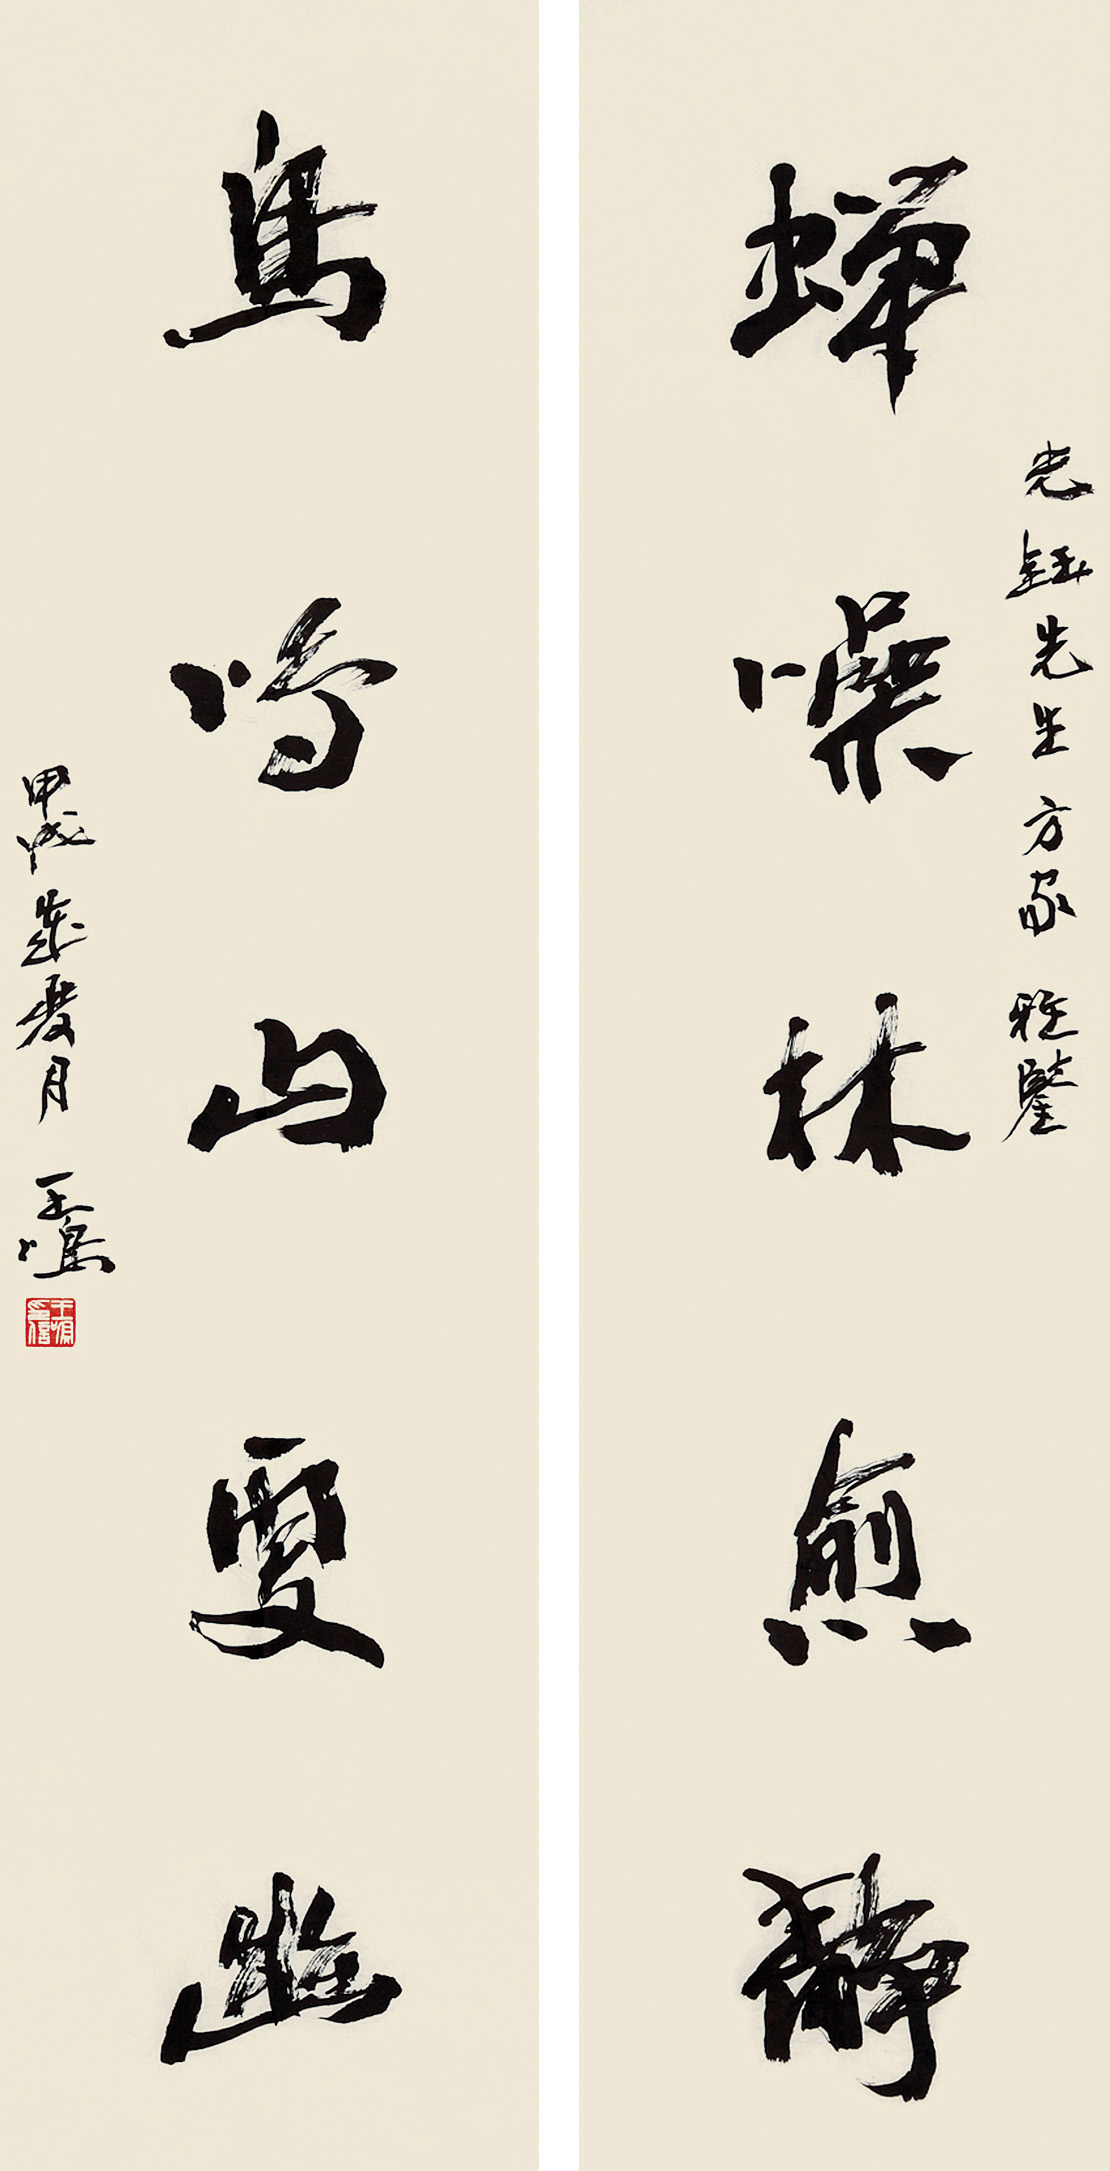 蟬噪林愈靜
光鈺先生方家 雅鑒
鳥鳴山更幽
甲戌年夏月 王鳴